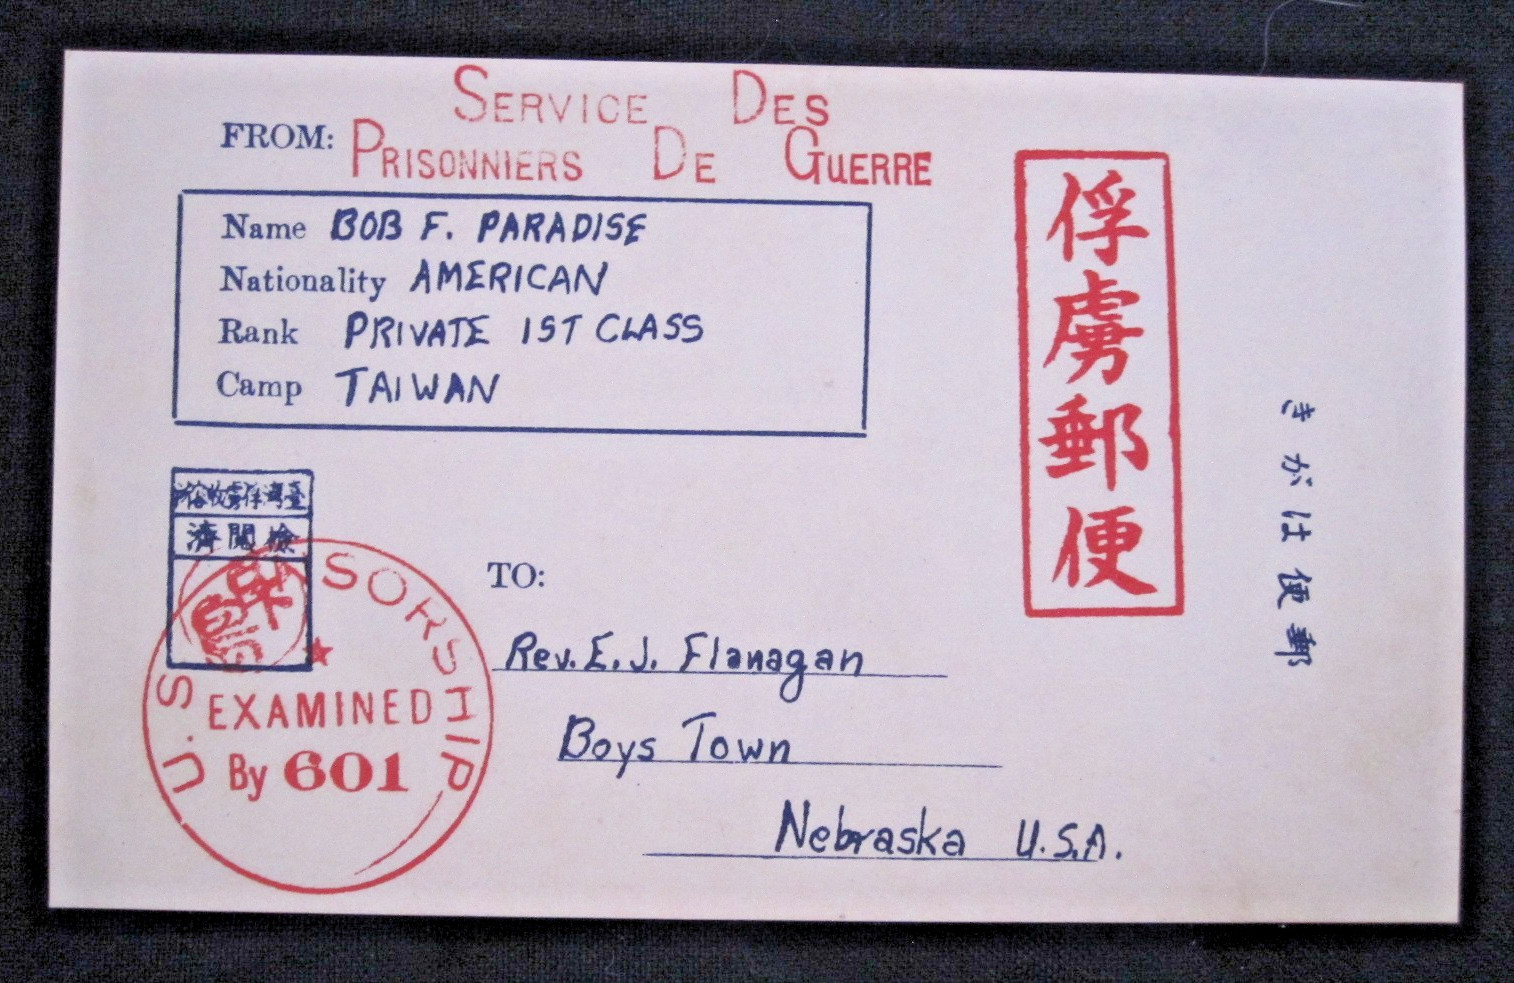 SERVICE DES
FROM: PRISONNIERS DE GUERRE
Name BOB F. PARADISE
Nationality AMERICAN
Rank PRIVATE 1ST CLASS
Camp TAIWAN
俘虜郵便
きがは便郵
臺灣俘虜收容所
檢閲濟
U.S. CENSORSHIP
EXAMINED
By 601
TO:
Rev. E. J. Flanagan
Boys Town
Nebraska U.S.A.